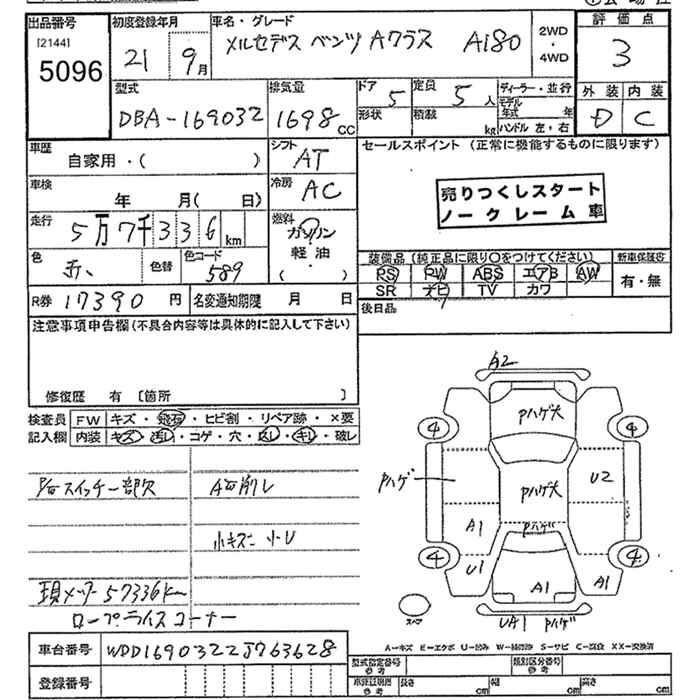 出品番号 初度登録年月 車名・グレード 2WD ・ 4WD 評価点
[2144] 5096 21 9月 メルセデス ベンツ Aクラス A180 3
型式 排気量 ドア 5 定員 5人 ディーラー・並行 外装 内装
DBA-169032 1698CC 形状 積載 kg モデル年式 年 ハンドル 左・右 D C
車歴 自家用・( ) シフト AT セールスポイント (正常に機能するものに限ります)
車検 年 月( 日) 冷房 AC 売りつくしスタート
走行 5万7千336km 燃料 ガソリン 軽油 ( ) ノークレーム車
色 赤、 色替 色コード 589 装備品 (純正品に限り〇をつけてください) 新車保証書
PS PW ABS エアB AW 有・無
R券 17390円 名変通知期限 月 日 SR ナビ TV カワ
注意事項申告欄(不具合内容等は具体的に記入して下さい) 後日品
修復歴 有 [箇所 ]
検査員 FW キズ・飛石・ヒビ割・リペア跡・×要
記入欄 内装 キズ・汚レ・コゲ・穴・
A2
Pハゲ大
4 4
Pハゲ Pハゲ大 U2
A1 Pハゲ
4 4
U1 A1 A1
スペア UA1 Pハゲ
P席スイッチ一部欠
小キズ 小U
現メーター57336km
ロープライスコーナー
A=キズ E=エクボ U=凹み S=サビ C=腐食 XX=交換済
車台番号 WDD1690322J763628 型式指定番号 参考 類別区分番号 参考
登録番号 参考 長さ cm 幅 cm 高さ cm